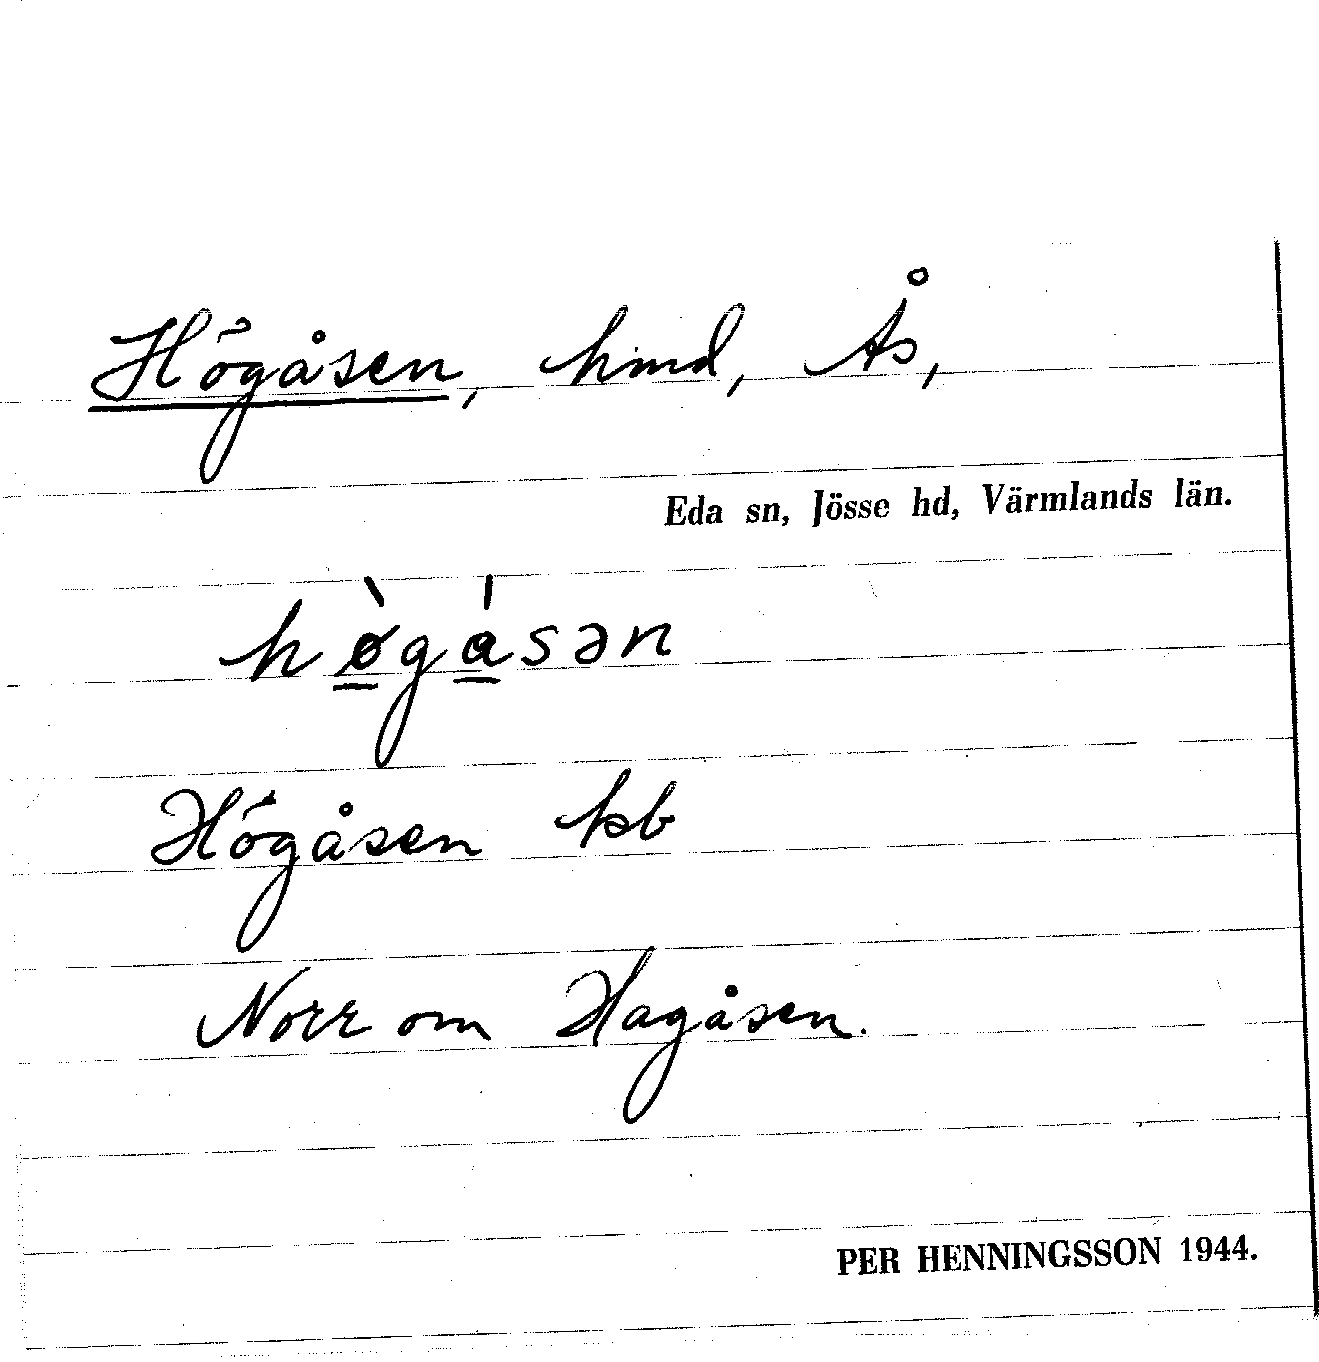 Högåsen, hmd, Ås,
Eda sn, Jösse hd, Värmlands län.
hø̀gásən
Högåsen kb
Norr om Hagåsen.
PER HENNINGSSON 1944.